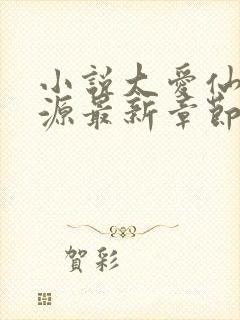 小說太愛仙
源最新章節
賀彩